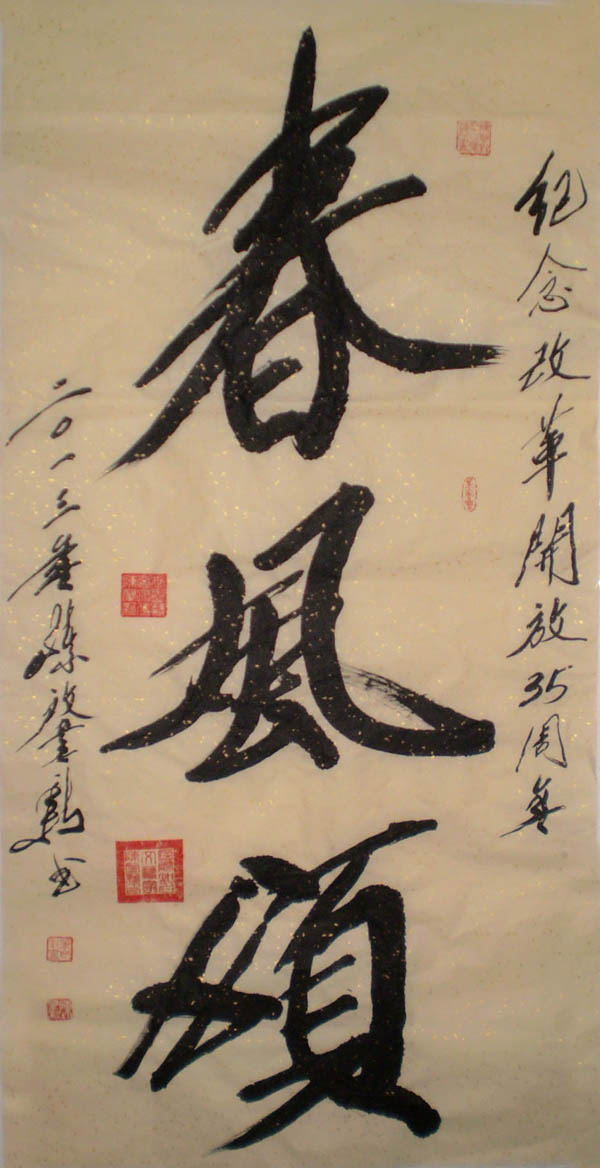 紀念改革開放35周年
春風頌
二〇一三年
书